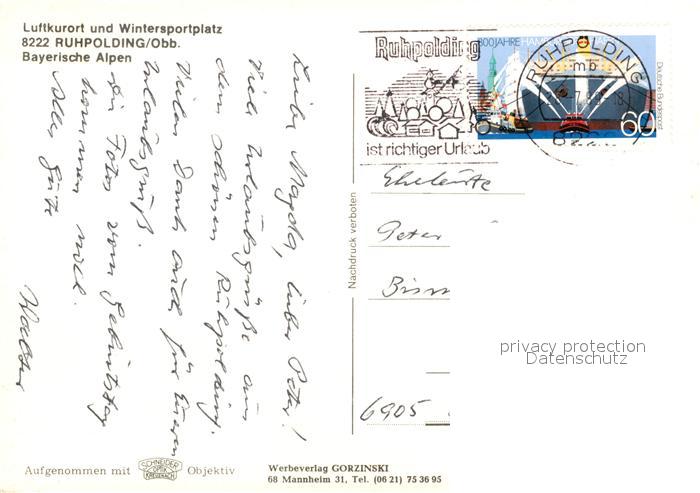 Luftkurort und Wintersportplatz
8222 RUHPOLDING/Obb.
Bayerische Alpen
Liebe Magda, lieber Peter!
Viele Urlaubsgrüße aus
dem schönen Ruhpolding.
Vielen Dank auch für Eueren
Urlaubsgruß.
Die Fotos vom Geburtstag
kommen noch.
Alles Gute
Walter
Ruhpolding
ist richtiger Urlaub
800 JAHRE HAMB
RUHPOLDING
mb
Deutsche Bundespost
60
Eheleute
Peter
Bism
6905
Nachdruck verboten
privacy protection
Datenschutz
Aufgenommen mit SCHNEIDER OPTIK KREUZNACH Objektiv
Werbeverlag GORZINSKI
68 Mannheim 31, Tel. (06 21) 75 36 95